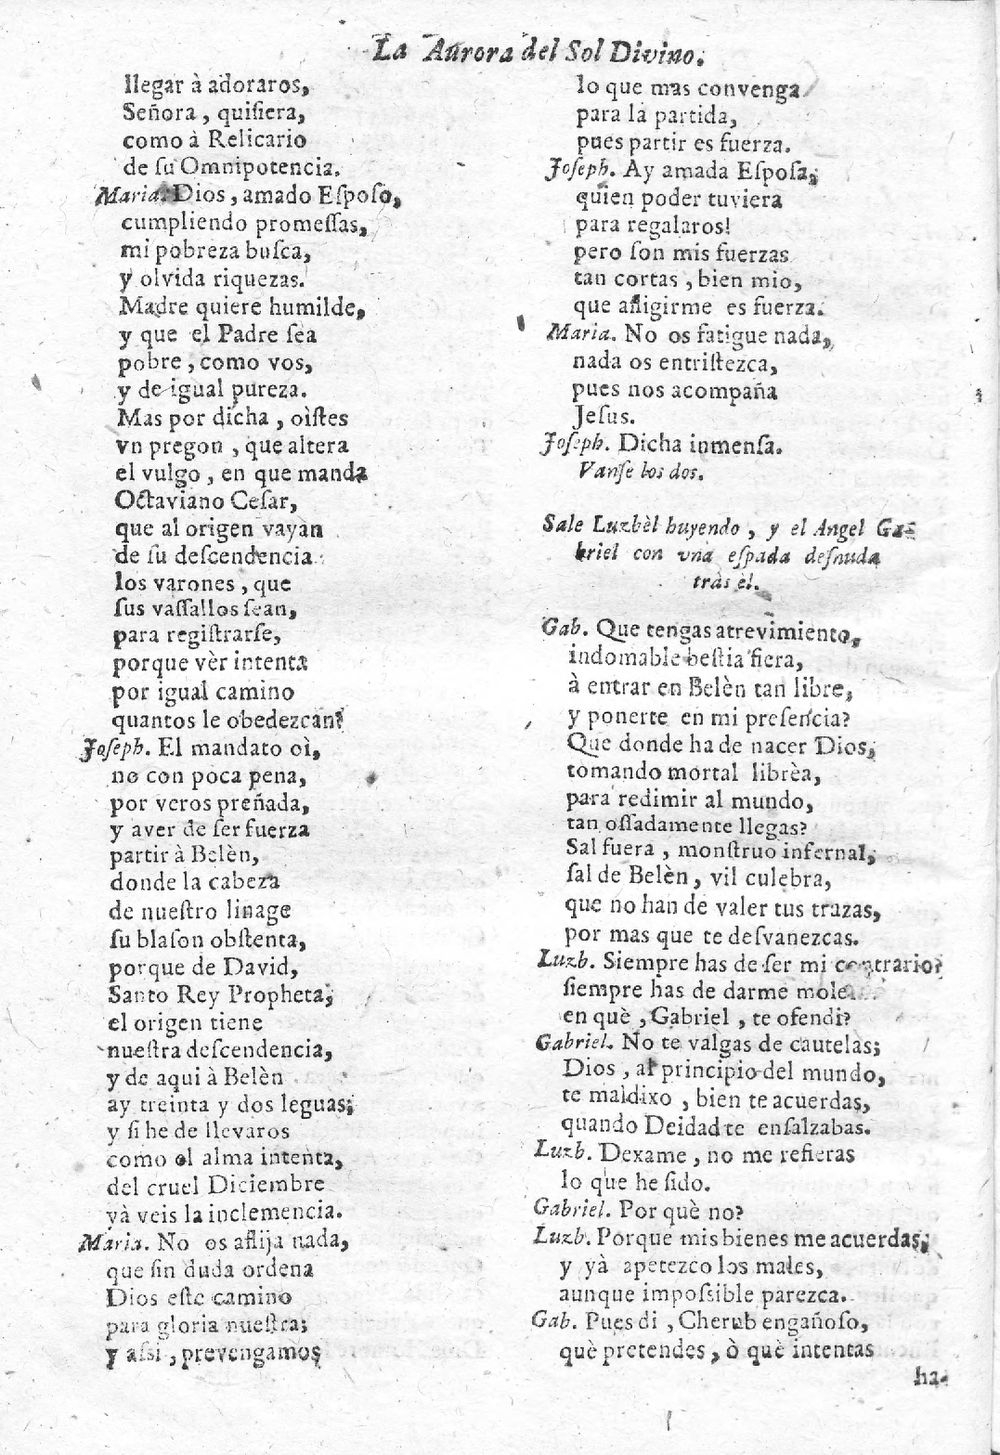 La Aurora del Sol Divino.
llegar à adoraros,
Señora, quisiera,
como à Relicario
de su Omnipotencia.
Maria. Dios, amado Esposo,
cumpliendo promessas,
mi pobreza busca,
y olvida riquezas.
Madre quiere humilde,
y que el Padre sea
pobre, como vos,
y de igual pureza.
Mas por dicha, oìstes
vn pregon, que altera
el vulgo, en que manda
Octaviano Cesar,
que al origen vayan
de su descendencia
los varones, que
sus vassallos sean,
para registrarse,
porque vèr intenta
por igual camino
quantos le obedezcan?
Joseph. El mandato oì,
no con poca pena,
por veros preñada,
y aver de ser fuerza
partir à Belèn,
donde la cabeza
de nuestro linage
su blason obstenta,
porque de David,
Santo Rey Propheta,
el origen tiene
nuestra descendencia,
y de aqui à Belèn
ay treinta y dos leguas;
y si he de llevaros
como el alma intenta,
del cruel Diciembre
yà veis la inclemencia.
Maria. No os aflija nada,
que sin duda ordena
Dios este camino
para gloria nuestra;
y assi, prevengamos
lo que mas convenga
para la partida,
pues partir es fuerza.
Joseph. Ay amada Esposa,
quien poder tuviera
para regalaros!
pero son mis fuerzas
tan cortas, bien mio,
que afligirme es fuerza.
Maria. No os fatigue nada,
nada os entristezca,
pues nos acompaña
Jesus.
Joseph. Dicha inmensa.
Vanse los dos.
Sale Luzbèl huyendo, y el Angel Ga-
briel con vna espada desnuda
tràs èl.
Gab. Que tengas atrevimiento,
indomable bestia fiera,
à entrar en Belèn tan libre,
y ponerte en mi presencia?
Que donde ha de nacer Dios,
tomando mortal librèa,
para redimir al mundo,
tan ossadamente llegas?
Sal fuera, monstruo infernal,
sal de Belèn, vil culebra,
que no han de valer tus trazas,
por mas que te desvanezcas.
Luzb. Siempre has de ser mi contrario?
siempre has de darme
en què, Gabriel, te ofendi?
Gabriel. No te valgas de cautelas;
Dios, al principio del mundo,
te maldixo, bien te acuerdas,
quando Deidad te ensalzabas.
Luzb. Dexame, no me refieras
lo que he sido.
Gabriel. Por què no?
Luzb. Porque mis bienes me acuerdas,
y yà apetezco los males,
aunque impossible parezca.
Gab. Pues di, Cherub engañoso,
què pretendes, ò què intentas
ha-